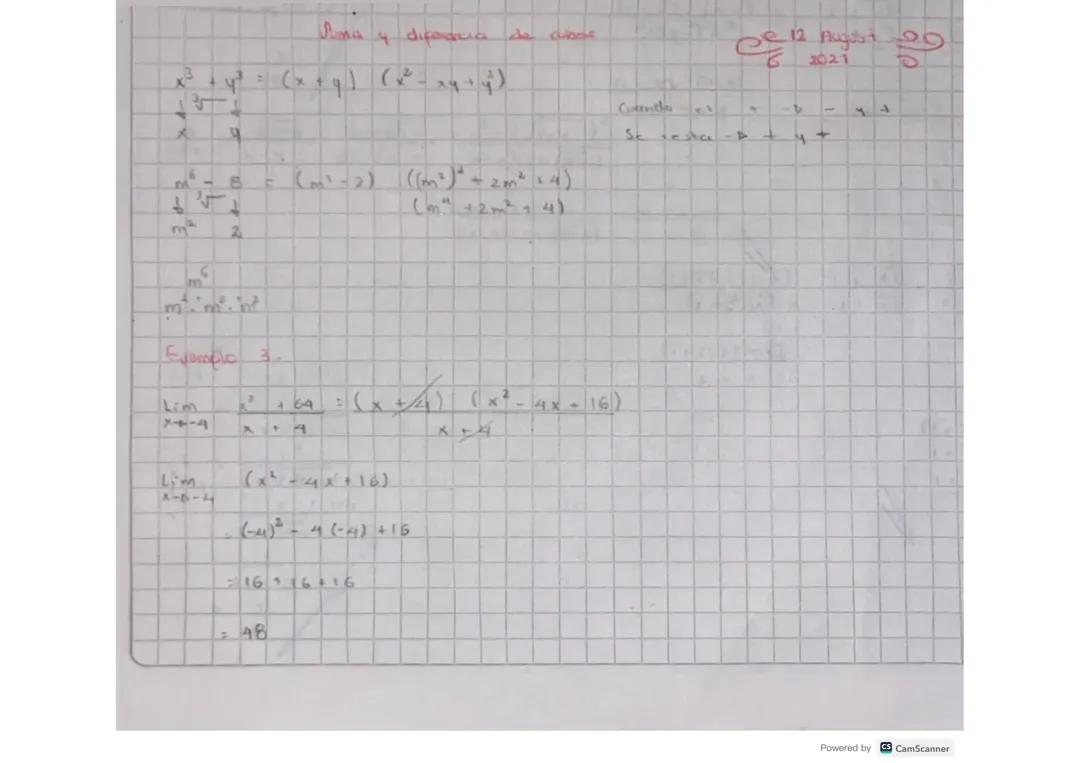 Suma y diferencia de cubos
12 August
2021
x³ + y³ = (x + y) (x² - xy + y²)
↓ ³√ ↓
x y
Cuando es + → - y +
Se resta → + y +
m⁶ - 8 = (m² - 2) ((m²)² + 2m² + 4)
↓ ³√ ↓ (m⁴ + 2m² + 4)
m² 2
m⁶
m² · m² · m²
Ejemplo 3.
Lim x³ + 64 = (x + 4) (x² - 4x + 16)
x→-4 x + 4 x + 4
Lim (x² - 4x + 16)
x→-4
= (-4)² - 4 (-4) + 16
= 16 + 16 + 16
= 48
Powered by CS CamScanner